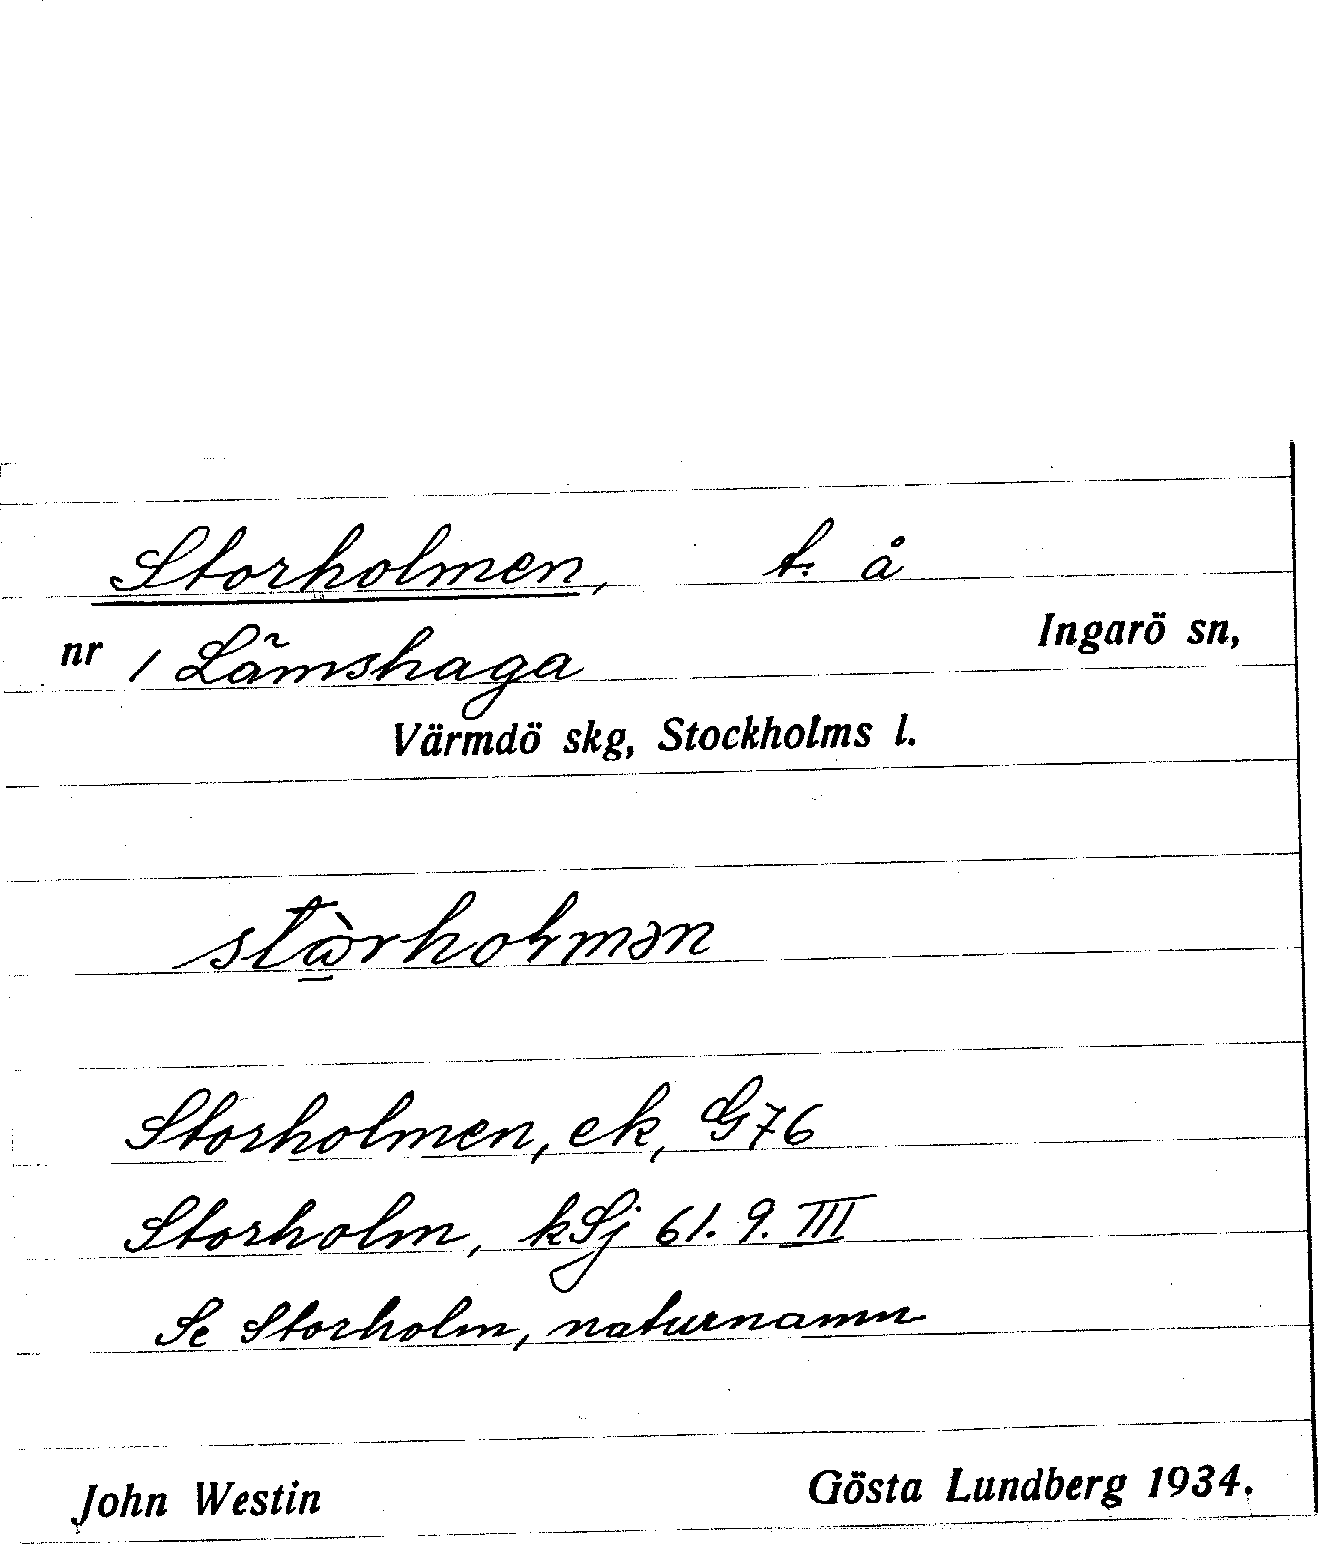 Storholmen, t. å
nr 1 Lämshaga Ingarö sn,
Värmdö skg, Stockholms l.
Storholmen, ek, G76
Storholm, kSj 61. 9. III
Se Storholm, naturnamn
John Westin Gösta Lundberg 1934.